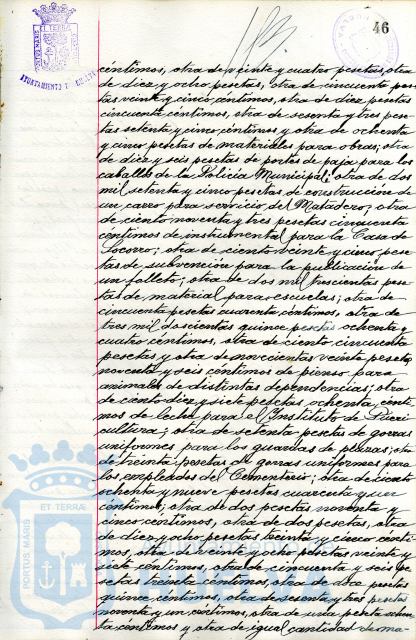 46
AYUNTAMIENTO DE HUELVA
céntimos, otra de veinte y cuatro pesetas, otra
de diez y ocho pesetas, otra de cincuenta pese-
tas veinte y cinco céntimos, otra de diez pesetas
cincuenta céntimos, otra de sesenta y tres pese-
tas setenta y cinco céntimos y otra de ochenta
y cinco pesetas de materiales para obras; otra
de diez y seis pesetas de portes de paja para los
caballos de la Policía Municipal; otra de dos
mil setenta y cinco pesetas de construcción de
un carro para servicio del Matadero; otra
de ciento noventa y tres pesetas cincuenta
céntimos de instrumental para la Casa de
Socorro; otra de ciento veinte y cinco pese-
tas de subvención para la publicación de
un folleto; otra de dos mil trescientas pese-
tas de material para escuelas; otra de
cincuenta pesetas cuarenta céntimos, otra de
tres mil doscientas quince pesetas ochenta y
cuatro céntimos, otra de ciento cincuenta
pesetas y otra de novecientas veinte pesetas
noventa y seis céntimos de pienso para
animales de distintas dependencias; otra
de ciento diez y siete pesetas ochenta cénti-
mos de leche para el Instituto de Pueri
cultura; otra de setenta pesetas de gorras
uniformes para los guardas de plazas; otra
de treinta pesetas de gorras uniformes para
los empleados del Cementerio; otra de ciento
ochenta y nueve pesetas cuarenta y un
céntimos, otra de dos pesetas noventa y
cinco céntimos, otra de dos pesetas, otra
de diez y ocho pesetas treinta y cinco cénti-
mos, otra de veinte y ocho pesetas veinte y
siete céntimos, otra de cincuenta y seis pe-
setas treinta céntimos, otra de doce pesetas
quince céntimos, otra de sesenta y tres pesetas
noventa y un céntimos, otra de una peseta ochen-
ta céntimos y otra de igual cantidad de ma-
ET TERRÆ
PORTUS MARIS